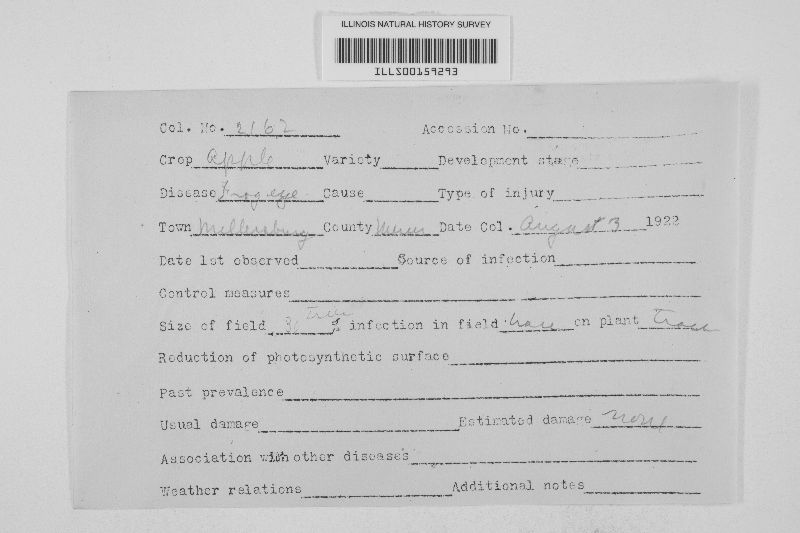 ILLINOIS NATURAL HISTORY SURVEY
ILLS00159293
Col. No. 2162 Accession No.
Crop Apple Variety Development stage
Disease Frog eye Cause Type of injury
Town Millersburg County Mercer Date Col. August 3 1922
Date 1st observed Source of infection
Control measures
Size of field 30 trees % infection in field trace on plant trace
Reduction of photosynthetic surface
Past prevalence
Usual damage Estimated damage none
Association with other diseases
Weather relations Additional notes